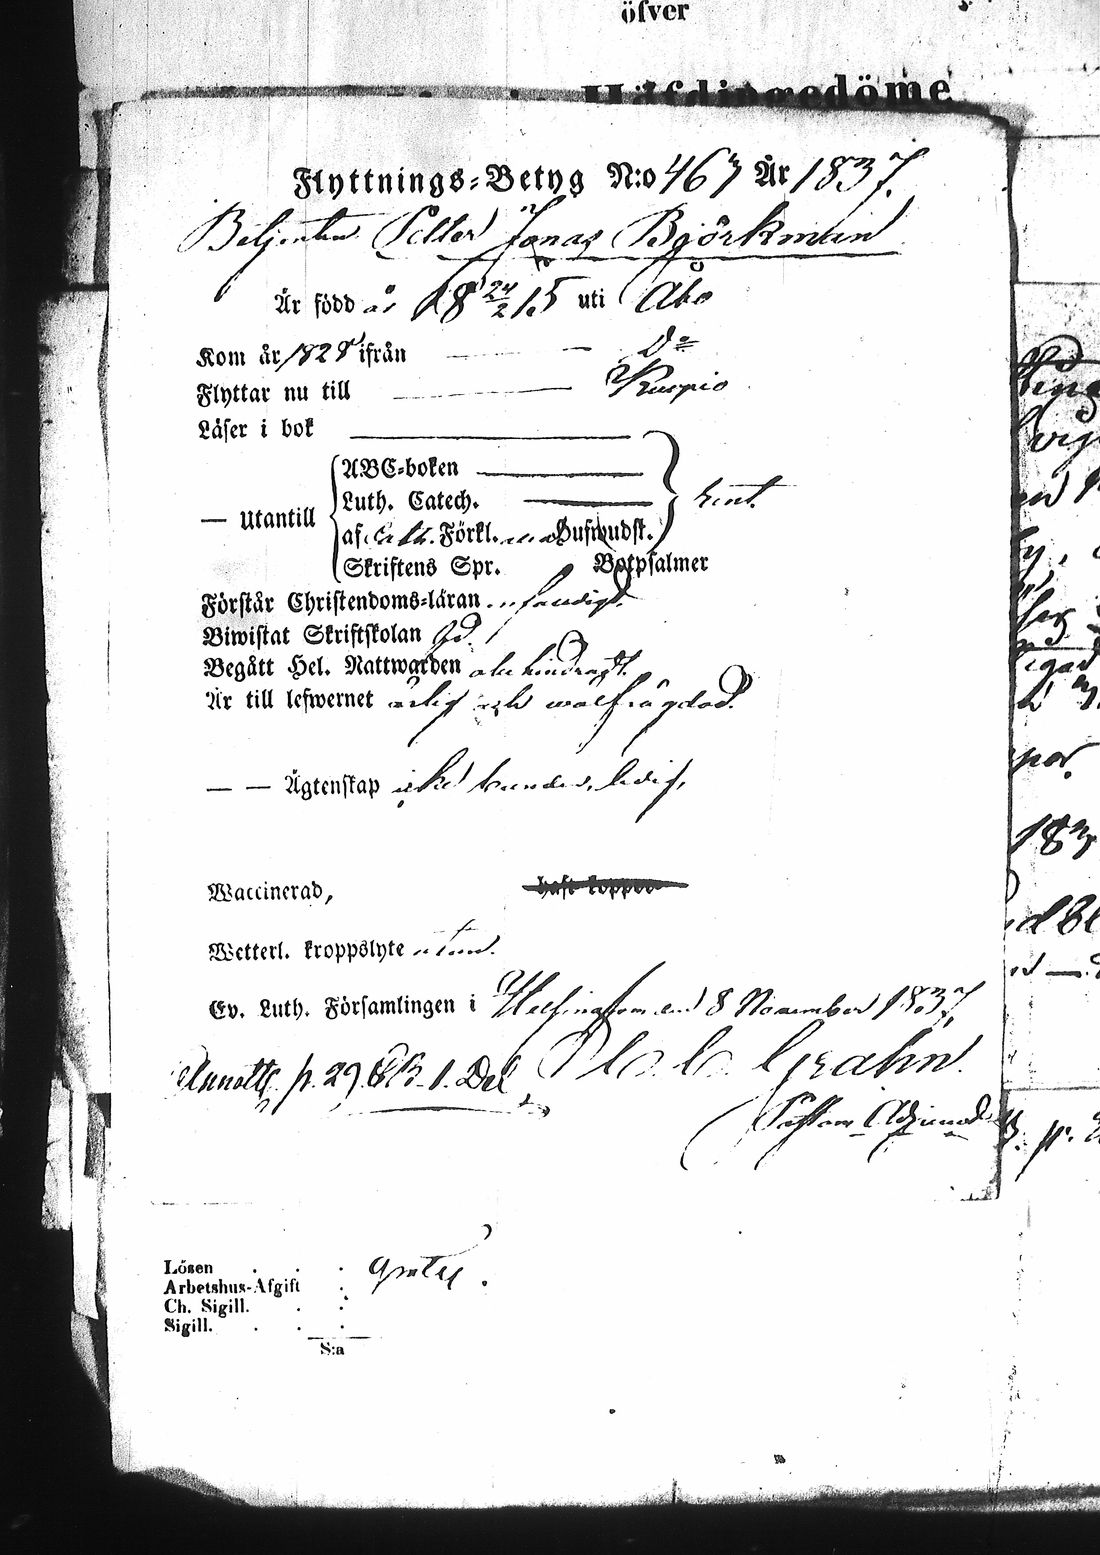 öfver
Höfdingedöme
Flyttnings-Betyg N:o 463 År 1837.
Betjenten Petter Jonas Björkman
Är född år 18 24/2 15 uti Åbo
Kom år 1828 ifrån D:o
Flyttar nu till Kuopio
Läser i bok
— Utantill
ABC-boken
Luth. Catech.
af Förkl. Hufwudst.
rent.
Skriftens Spr. Botpsalmer
Förstår Christendoms-läran nöjagtigt.
Biwistat Skriftskolan Jd.
Begått Hel. Nattwarden obehindradt.
Är till lefwernet ärlig och wälfrägdad.
— — Ägtenskap icke bunden, ledig,
Waccinerad, haft koppor
Wetterl. kroppslyte utan.
Ev. Luth. Församlingen i Helsingfors den 8 November 1837.
Grahn.
p. 29 1. Del
Pastors Adjunct
Lösen . . . gratis.
Arbetshus-Afgift .
Ch. Sigill. . .
Sigill. . . .
S:a